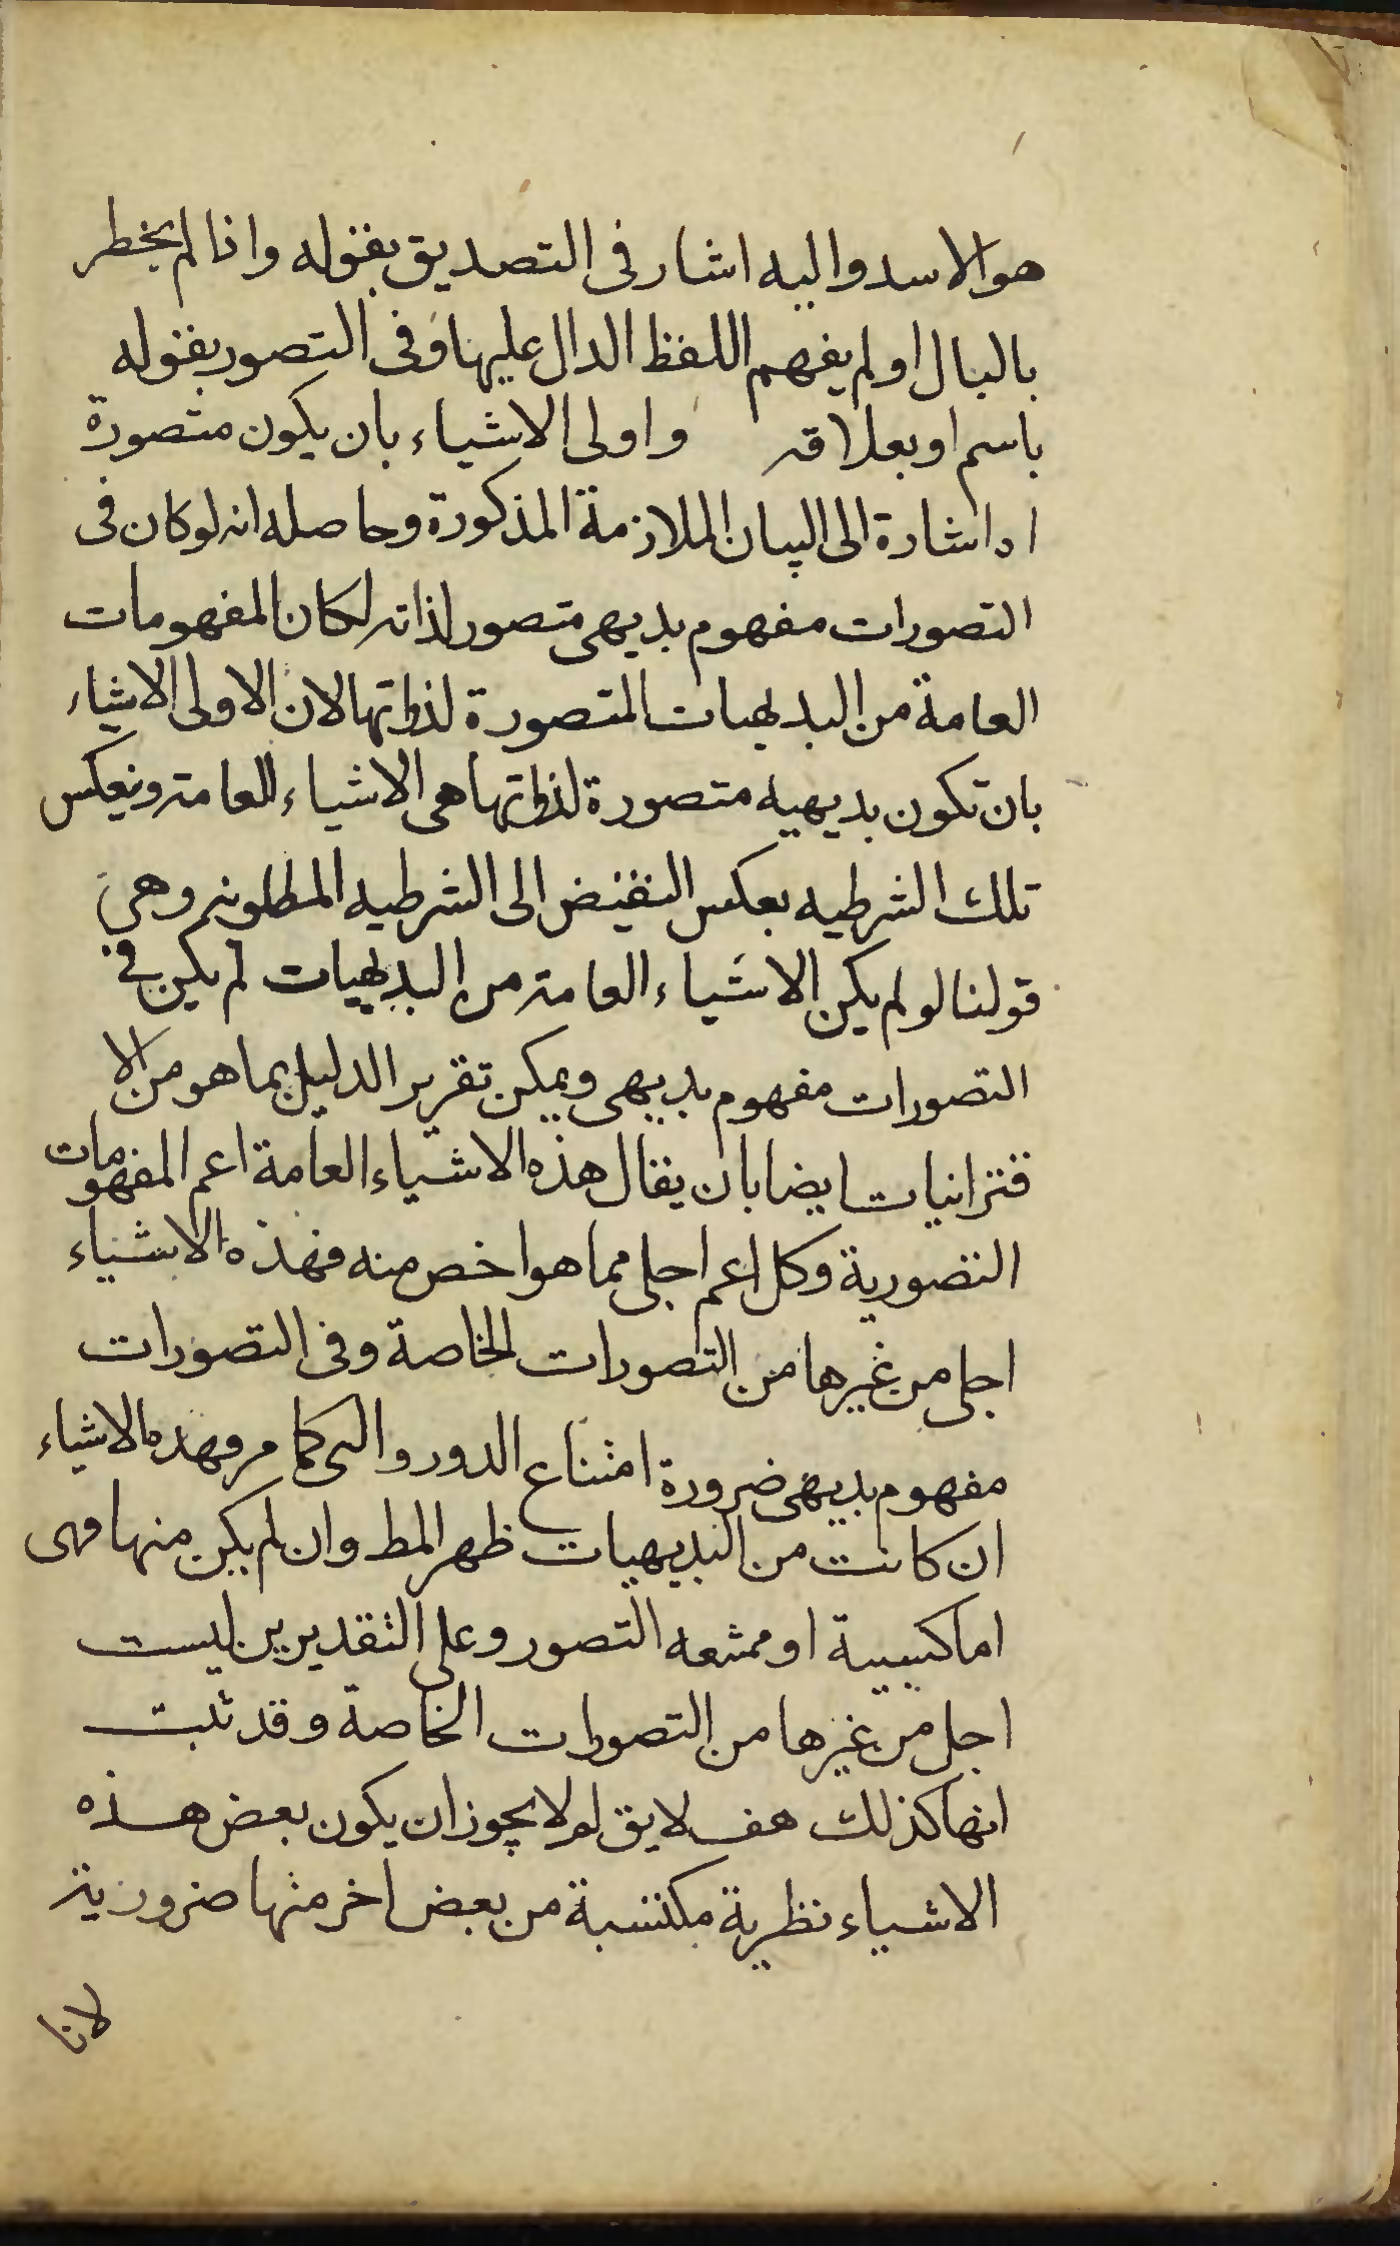 هو الاسد واليه اشار فى التصديق بقوله واذا لم يخطر
بالبال او لم يفهم اللفظ الدال عليها وفى التصور بقوله
باسم او بعلاقه واولى الاشياء بان يكون متصورة
اه اشارة الى البيان الملازمة المذكورة وحاصله انه لو كان فى
التصورات مفهوم بديهى متصور لذاته لكان المفهومات
العامة من البديهيات المتصورة لذواتها لان الاولى الاشياء
بان تكون بديهيه متصورة لذواتها هى الاشياء العامة ونعكس
تلك الشرطيه بعكس النقيض الى الشرطيه المطلوبه وهى
قولنا لو لم يكن الاشياء العامة من البديهيات لم يكن فى
التصورات مفهوم بديهى ويمكن تقرير الدليل بما هو من الا
قترانيات ايضا بان يقال هذه الاشياء العامة اعم المفهومات
التصورية وكل اعم اجلى مما هو اخص منه فهذه الاشياء
اجلى من غيرها من التصورات الخاصة وفى التصورات
مفهوم بديهى ضرورة امتناع الدور والتى كما مر فهذه الاشياء
ان كانت من البديهيات ظهر المط وان لم يكن منها فهى
اما كسبية او ممتنعه التصور وعلى التقديرين ليست
اجلى من غيرها من التصورات الخاصة وقد ثبت
انها كذلك هف لايق لم لا يجوز ان يكون بعض هذه
الاشياء نظرية مكتسبة من بعض اخر منها ضرورية
لانا